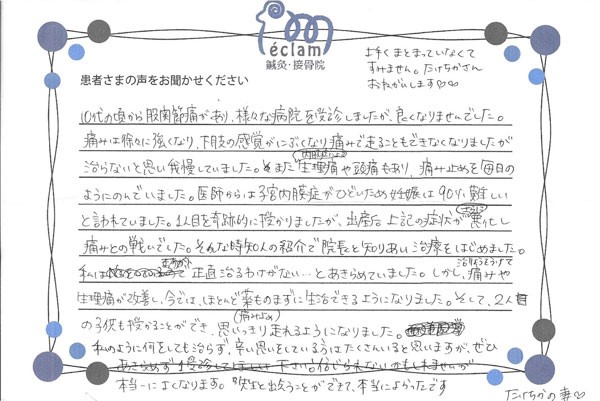 éclam
鍼灸・接骨院
上手くまとまっていなくて
すみません。たけちかさん
おねがいします♡♡
患者さまの声をお聞かせください
10代の頃から股関節痛があり、様々な病院を受診しましたが、良くなりませんでした。
痛みは徐々に強くなり、下肢の感覚がにぶくなり痛みで走ることもできなくなりましたが
治らないと思い我慢していました。また生理痛や頭痛もあり、痛み止めを毎日の
ようにのんでいました。医師からは子宮内膜症がひどいため妊娠は90%難しい
と言われていました。1人目を奇跡的に授かりましたが、出産后上記の症状がさらに悪化し
痛みとの戦いでした。そんな時知人の紹介で院長と知りあい治療をはじめました。
私は正直治るわけがない…とあきらめていました。しかし、治りょうをうけて痛みや
生理痛が改善し、今では、ほとんど薬ものまずに生活できるようになりました。そして、2人目
の子供も授かることができ、思いっきり走れるようになりました。
(痛み止め)
私のように何をしても治らず、辛い思いをしている方はたくさんいると思いますが、ぜひ
あきらめず受診してほしい
本当に良くなります。先生と出会うことができて、本当によかったです
たけちかの妻♡